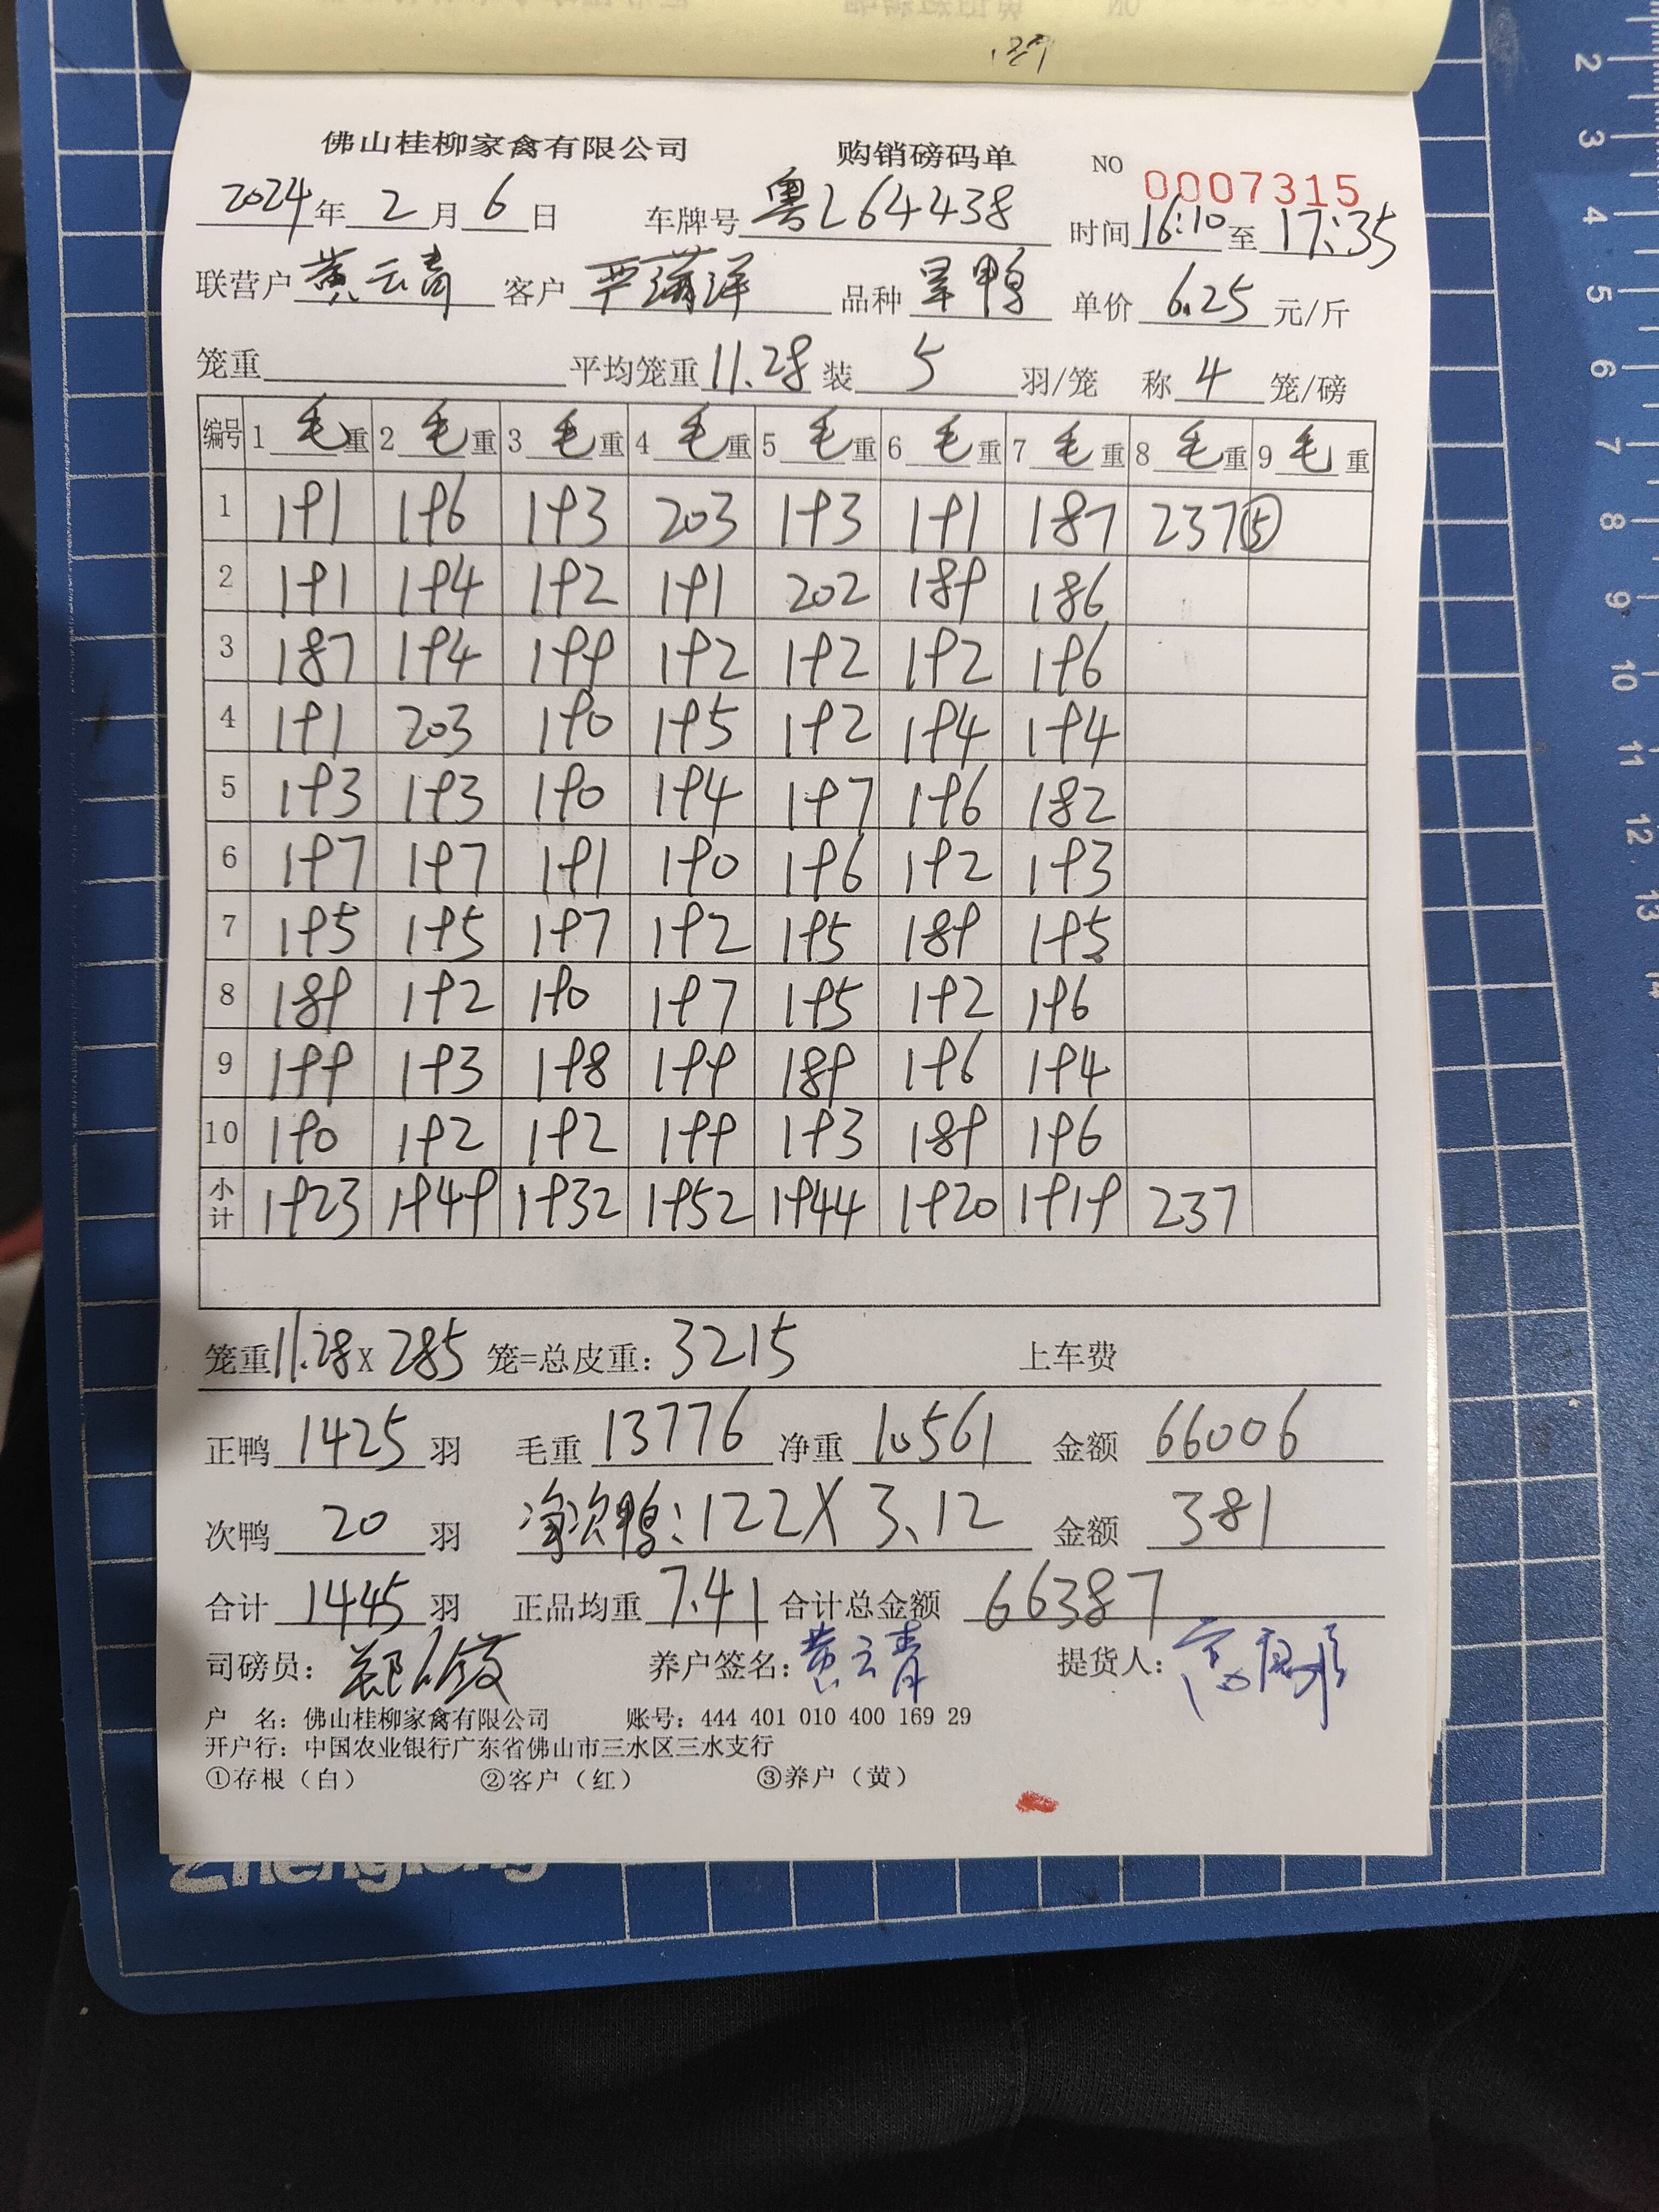 佛山桂柳家禽有限公司 购销磅码单 NO 0007315
2024年2月6日 车牌号 粤L64438 时间 16:10 至 17:35
联营户 黄云青 客户 严潇洋 品种 旱鸭 单价 6.25 元/斤
笼重 平均笼重 11.28 装 5 羽/笼 称 4 笼/磅
编号 1 毛重 2 毛重 3 毛重 4 毛重 5 毛重 6 毛重 7 毛重 8 毛重 9 毛重
1 191 196 193 203 193 191 187 237⑤
2 191 194 192 191 202 189 186
3 187 194 199 192 192 192 196
4 191 203 190 195 192 194 194
5 193 193 190 194 197 196 182
6 197 197 191 190 196 192 193
7 195 195 197 192 195 189 195
8 189 192 190 197 195 192 196
9 199 193 198 199 189 196 194
10 190 192 192 199 193 189 196
小计 1923 1949 1932 1952 1944 1920 1919 237
笼重 11.28 x 285 笼=总皮重: 3215 上车费
正鸭 1425 羽 毛重 13776 净重 10561 金额 66006
次鸭 20 羽 净次鸭: 122X3.12 金额 381
合计 1445 羽 正品均重 7.41 合计总金额 66387
司磅员: 养户签名: 黄云青 提货人:
户 名: 佛山桂柳家禽有限公司 账号: 444 401 010 400 169 29
开户行: 中国农业银行广东省佛山市三水区三水支行
①存根（白） ②客户（红） ③养户（黄）
2
3
4
5
6
7
8
9
10
11
12
13
14